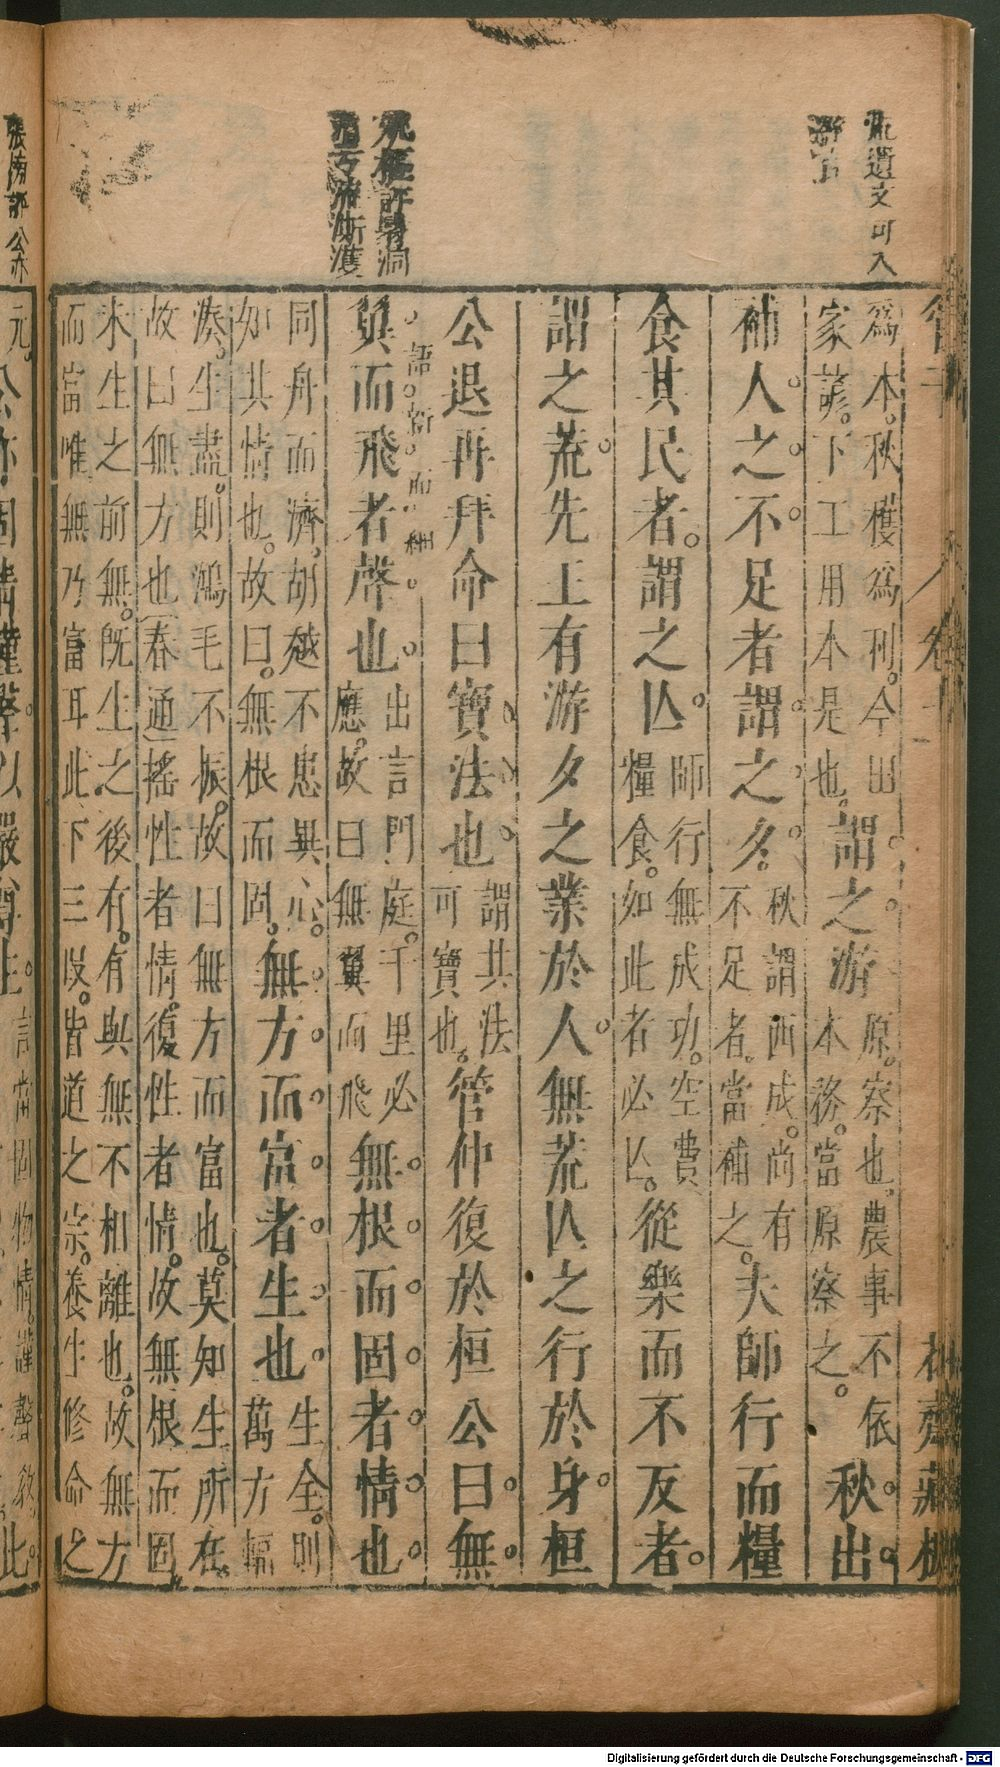 瓶遺文可入
評情洞
斯濩
管子
花齋藏板
爲本。秋穫爲利。今出
家諺。下工用本是也。
謂之游
原。察也。農事不依
本務。當原察之。
秋出
補人之不足者謂之夕。
秋謂西成。尚有
不足者。當補之。
夫師行而糧
食其民者。謂之亾。
師行無成功。空費
糧食。如此者必亾。
從樂而不反者。
謂之荒先王有游夕之業於人無荒亾之行於身桓
公退再拜命曰寶法也
謂其法
可寶也。
管仲復於桓公曰無
語新而
翼而飛者聲也
出言門庭。千里必
應。故曰無翼而飛
無根而固者情也
同舟而濟。胡越不患異心。
如其情也。故曰。無根而固。
無方而富者生也
生全。則
萬方輻
湊。生盡。則鴻毛不振。故曰無方而富也。莫知生所在。
故曰無方也春通搖性者情。復性者情。故無根而固。
未生之前無。旣生之後有。有與無不相離也。故無方
而富唯無乃富耳此下三段。皆道之宗。養生修命之
張
評
元
言當固物情。謹聲敎。
此
Digitalisierung gefördert durch die Deutsche Forschungsgemeinschaft - DFG